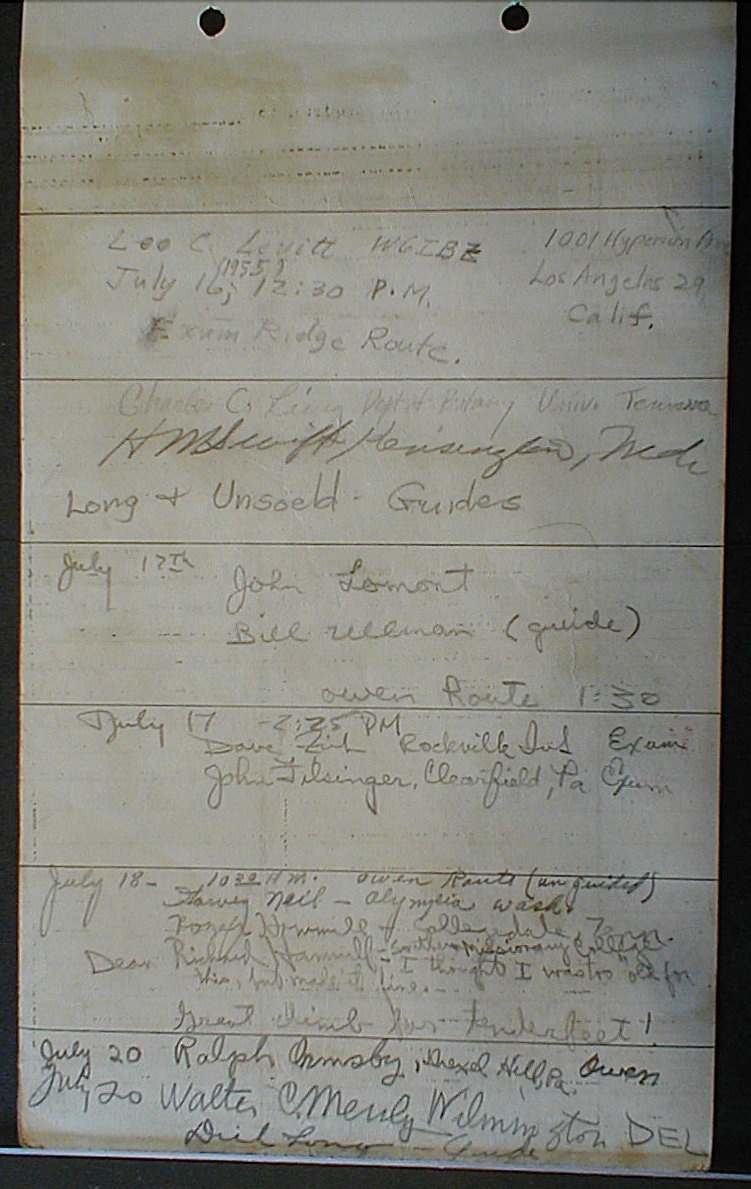 Leo C. Levitt W6IBZ 1001 Hyperion Ave
July 16, (1955?) 12:30 P.M. Los Angeles 29
Calif.
Exum Ridge Route.
Charles C. Dept of Botany Univ. Tennessee
Kensington, Md
Long + Unsoeld - Guides
July 17th John Lomont
Bill Ullman (guide)
Owen Route 1:30
July 17 - 2:25 PM
Dave Rockville Ind Exum
John Filsinger, Clearfield, Pa Exum
July 18 - 10 A.M. Owen Route (unguided)
Harvey Neil - Olympia Wash.
Hammill Collegedale, Tenn.
Dean Richard Hammill - Southern Missionary College
I thought I was too old for
this, but made it fine.
Great climb for tenderfoot!
July 20 Ralph Ormsby, Drexel Hill, Pa. Owen
July 20 Walter C. Wilmington DEL
Dick Long - Guide